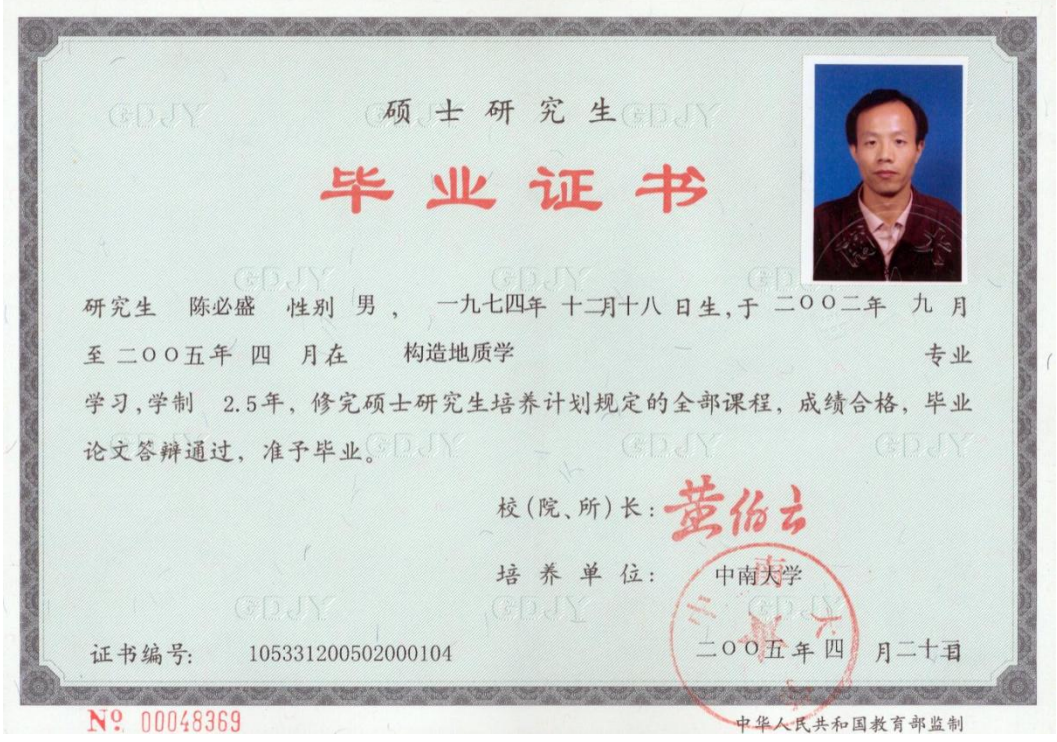 硕士研究生
毕业证书
研究生 陈必盛 性别 男， 一九七四年 十二月十八 日生，于 二〇〇二年 九 月
至 二〇〇五年 四 月在 构造地质学 专业
学习，学制 2.5年，修完硕士研究生培养计划规定的全部课程，成绩合格，毕业
论文答辩通过，准予毕业。
校（院、所）长：黄伯云
培 养 单 位： 中南大学
中南大学
证书编号： 105331200502000104
二〇〇五年 四 月二十日
№ 00048369
中华人民共和国教育部监制
GDJY